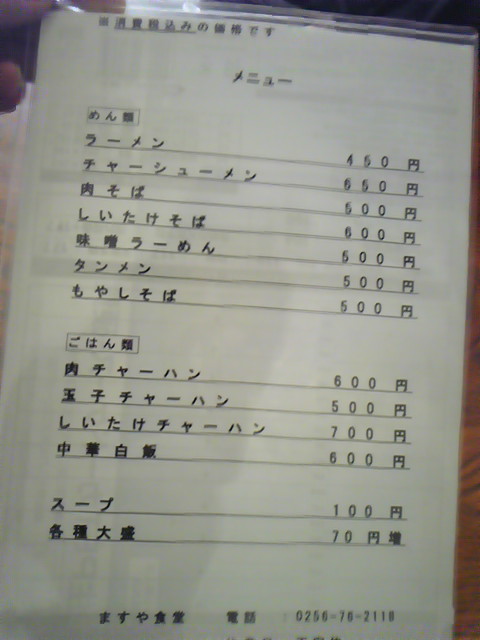 ※消費税込みの価格です
メニュー
めん類
ラーメン 450 円
チャーシューメン 650 円
肉そば 500 円
しいたけそば 600 円
味噌ラーめん 500 円
タンメン 500 円
もやしそば 500 円
ごはん類
肉チャーハン 600 円
玉子チャーハン 500 円
しいたけチャーハン 700 円
中華白飯 600 円
スープ 100 円
各種大盛 70 円増
ますや食堂 電話 :0256-76-2118